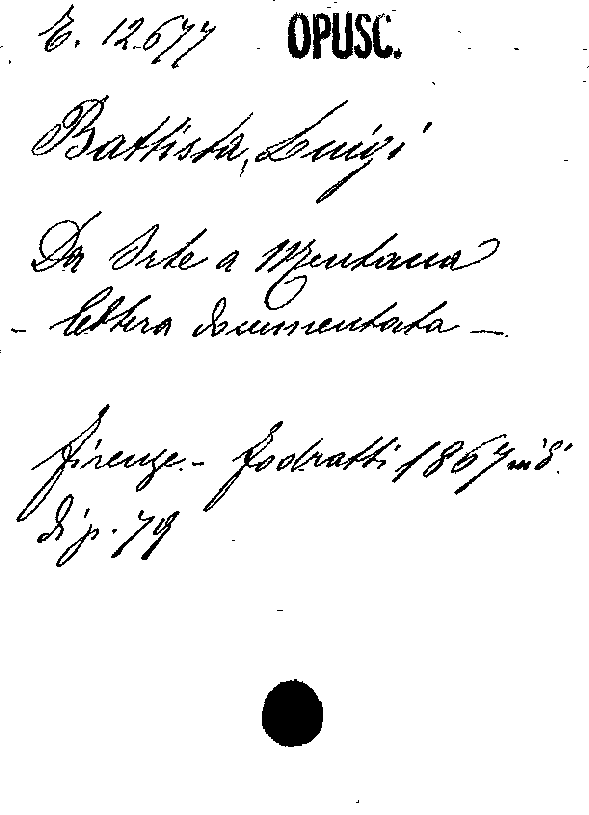 E. 12677 OPUSC.
Battista, Luigi
Da Orte a Mentana
- lettera documentata -
Firenze - Fodratti 1867 in 8°.
di p. 79